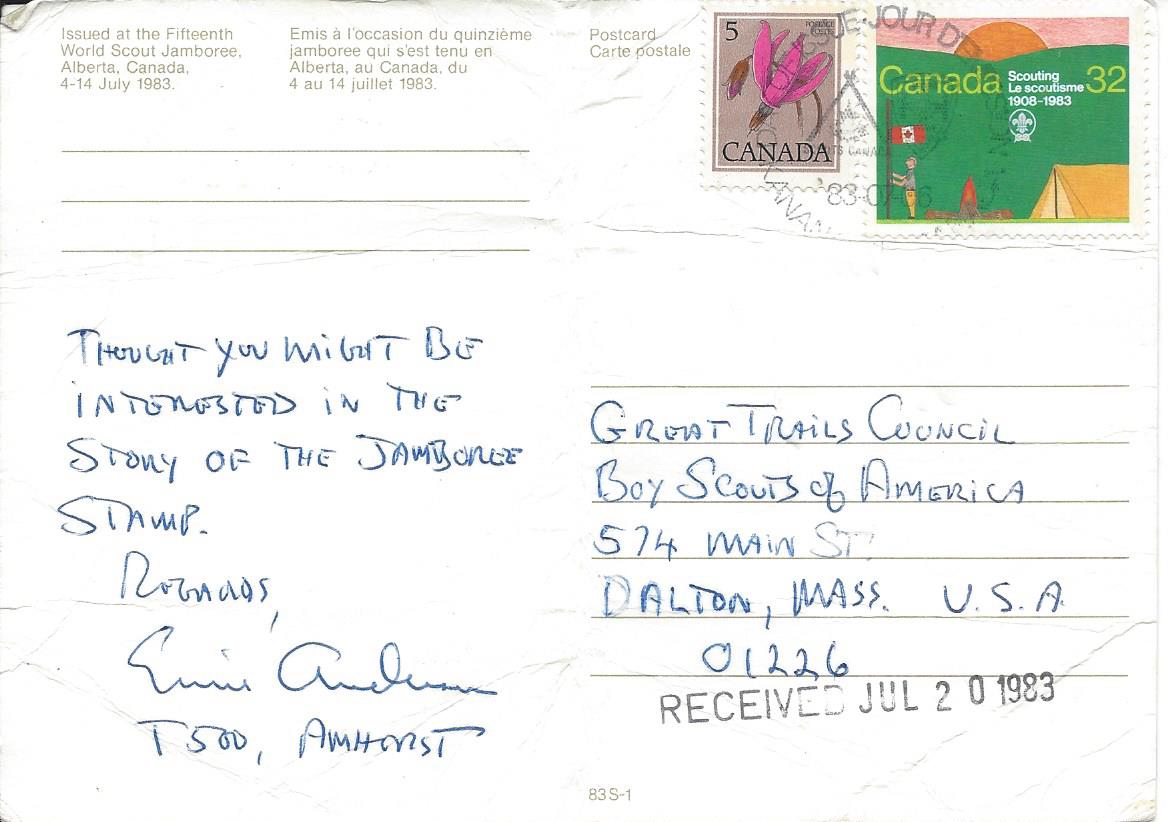 Issued at the Fifteenth
World Scout Jamboree,
Alberta, Canada,
4-14 July 1983.
Emis à l'occasion du quinzième
jamboree qui s'est tenu en
Alberta, au Canada, du
4 au 14 juillet 1983.
Postcard
Carte postale
5
POSTAGE
POSTES
CANADA
Canada
Scouting
Le scoutisme
1908-1983
32
JOUR D'
SCOUTS CANADA
83-07-06
CANA
THOUGHT YOU MIGHT BE
INTERESTED IN THE
STORY OF THE JAMBOREE
STAMP.
REGARDS,
Ernie Anderson
T500, AMHERST
GREAT TRAILS COUNCIL
BOY SCOUTS of AMERICA
574 MAIN ST.
DALTON, MASS. U.S.A.
01226
RECEIVED JUL 20 1983
83 S-1